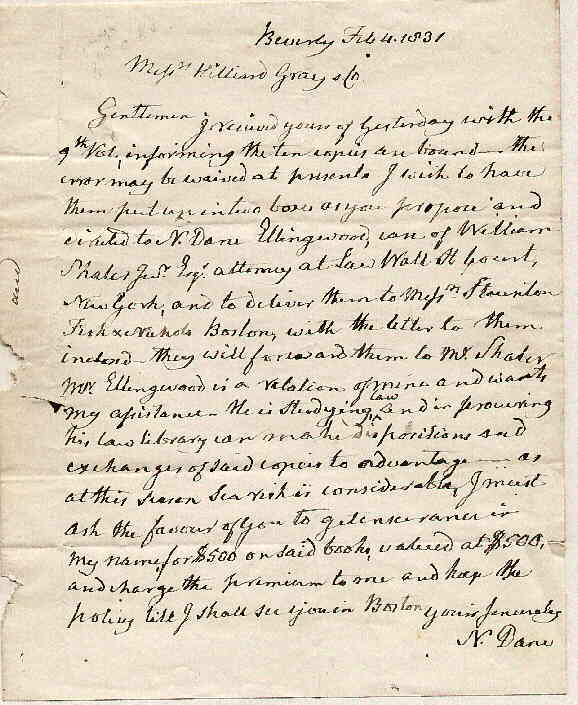 Beverly Feb 4. 1831
Messrs Hilliard Gray & Co
Gentlemen I received yours of yesterday with the
9th Vol, informing the ten copies are bound – the
error may be waived at present. I wish to have
them put up in two boxes as you propose and
directed to N. Dane Ellingwood, care of William
Shaler Jr. Esqr. attorney at law Wall St Court,
New York, and to deliver them to Messrs
Fisk & Nichols Boston, with the letter to them
inclosed – they will forward them to Mr. Shaler
Mr. Ellingwood is a relation of mine and wants
my assistance – He is studying law and in procuring
his law library can make dispositions and
exchanges of said copies to advantage — as
at this season sea risk is considerable, I must
ask the favour of you to get insurance in
my name for $500 on said books, valued at $500,
and charge the premium to me and keep the
policy till I shall see you in Boston yours sincerely
N. Dane
and